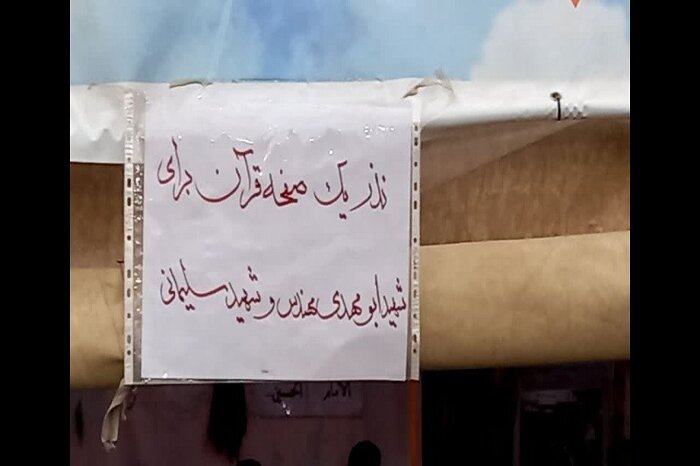 نذر یک صفحه قرآن برای
شهید ابو مهدی مهندس و شهید سلیمانی
الامام الحسين